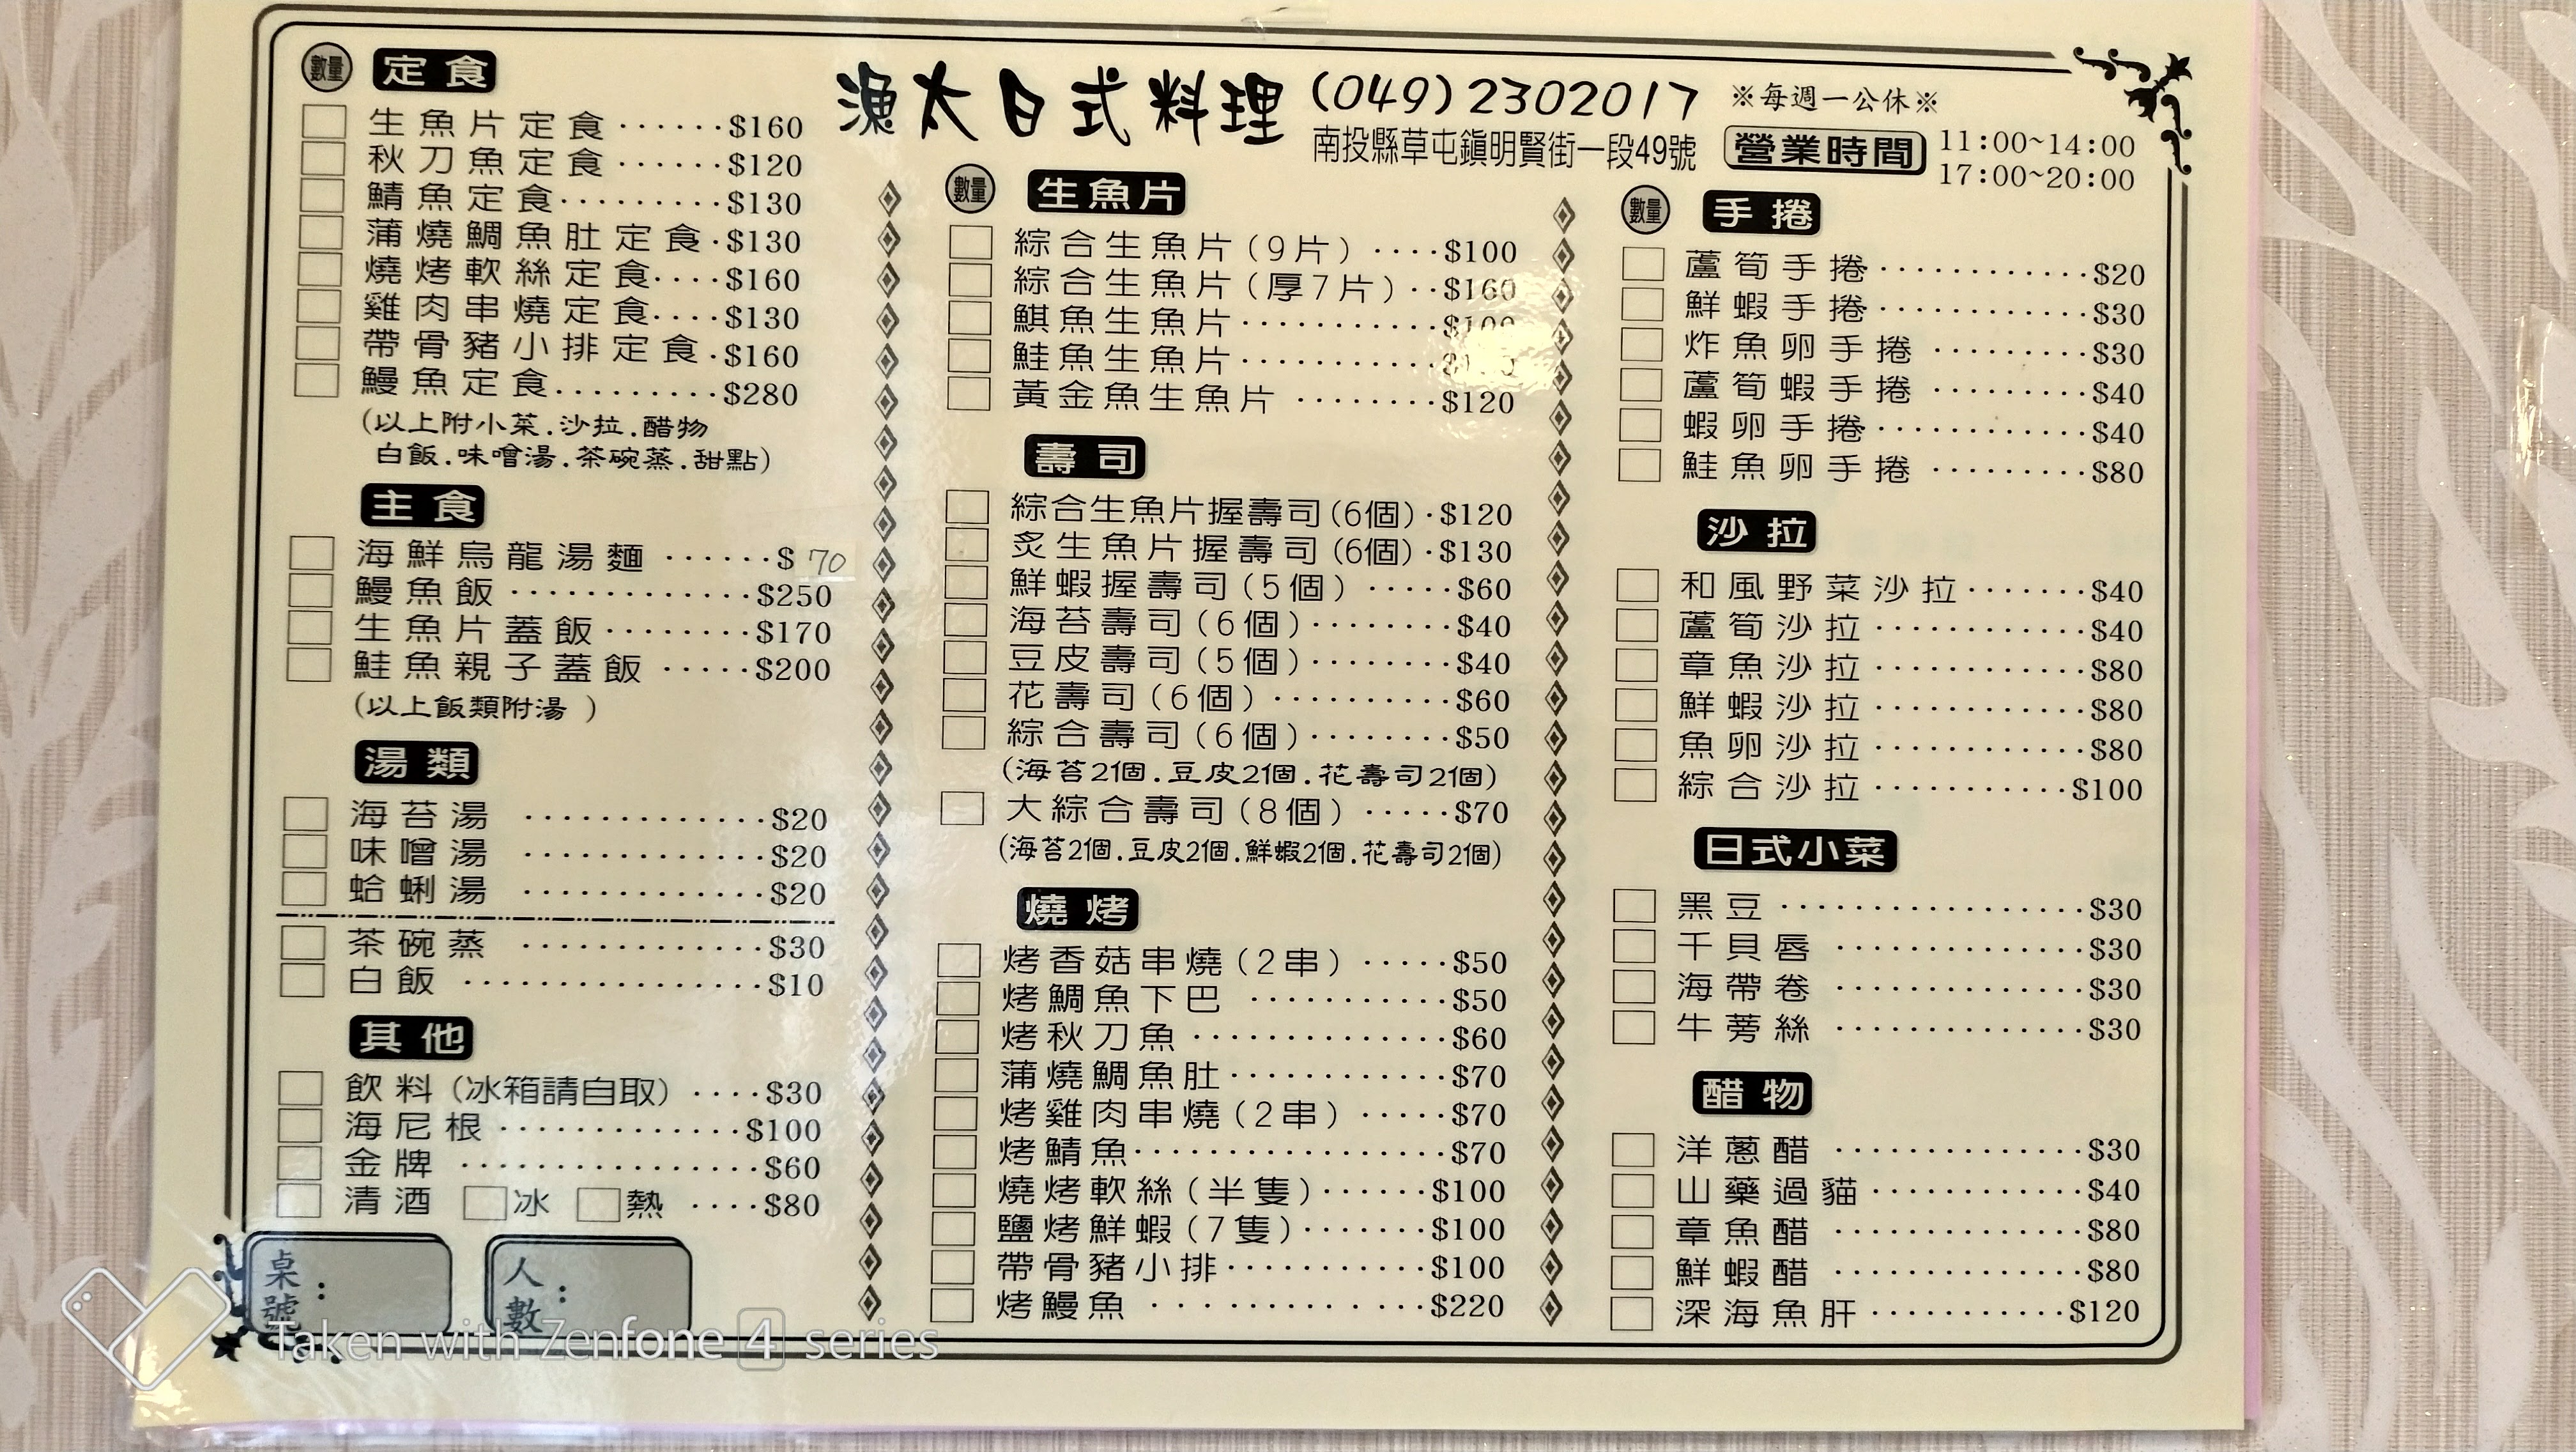 漁太日式料理 (049)2302017
南投縣草屯鎮明賢街一段49號
※每週一公休※
營業時間 11:00~14:00
17:00~20:00
數量 定食
生魚片定食······$160
秋刀魚定食······$120
鯖魚定食·········$130
蒲燒鯛魚肚定食·$130
燒烤軟絲定食····$160
雞肉串燒定食····$130
帶骨豬小排定食·$160
鰻魚定食·········$280
(以上附小菜.沙拉.醋物
白飯.味噌湯.茶碗蒸.甜點)
主食
海鮮烏龍湯麵······$70
鰻魚飯·············$250
生魚片蓋飯········$170
鮭魚親子蓋飯·····$200
(以上飯類附湯)
湯類
海苔湯·············$20
味噌湯·············$20
蛤蜊湯·············$20
茶碗蒸·············$30
白飯················$10
其他
飲料(冰箱請自取)····$30
海尼根·············$100
金牌················$60
清酒 冰 熱····$80
桌號:
人數:
數量 生魚片
綜合生魚片(9片)····$100
綜合生魚片(厚7片)··$160
鯕魚生魚片···········$100
鮭魚生魚片···········
黃金魚生魚片········$120
壽司
綜合生魚片握壽司(6個)·$120
炙生魚片握壽司(6個)·$130
鮮蝦握壽司(5個)·····$60
海苔壽司(6個)········$40
豆皮壽司(5個)········$40
花壽司(6個)··········$60
綜合壽司(6個)········$50
(海苔2個.豆皮2個.花壽司2個)
大綜合壽司(8個)·····$70
(海苔2個.豆皮2個.鮮蝦2個.花壽司2個)
燒烤
烤香菇串燒(2串)·····$50
烤鯛魚下巴···········$50
烤秋刀魚··············$60
蒲燒鯛魚肚············$70
烤雞肉串燒(2串)·····$70
烤鯖魚·················$70
燒烤軟絲(半隻)······$100
鹽烤鮮蝦(7隻)·······$100
帶骨豬小排···········$100
烤鰻魚··············$220
數量 手捲
蘆筍手捲············$20
鮮蝦手捲············$30
炸魚卵手捲·········$30
蘆筍蝦手捲·········$40
蝦卵手捲············$40
鮭魚卵手捲·········$80
沙拉
和風野菜沙拉·······$40
蘆筍沙拉············$40
章魚沙拉············$80
鮮蝦沙拉············$80
魚卵沙拉············$80
綜合沙拉···········$100
日式小菜
黑豆·················$30
干貝唇··············$30
海帶卷··············$30
牛蒡絲··············$30
醋物
洋蔥醋··············$30
山藥過貓············$40
章魚醋··············$80
鮮蝦醋··············$80
深海魚肝···········$120
Taken with Zenfone 4 series